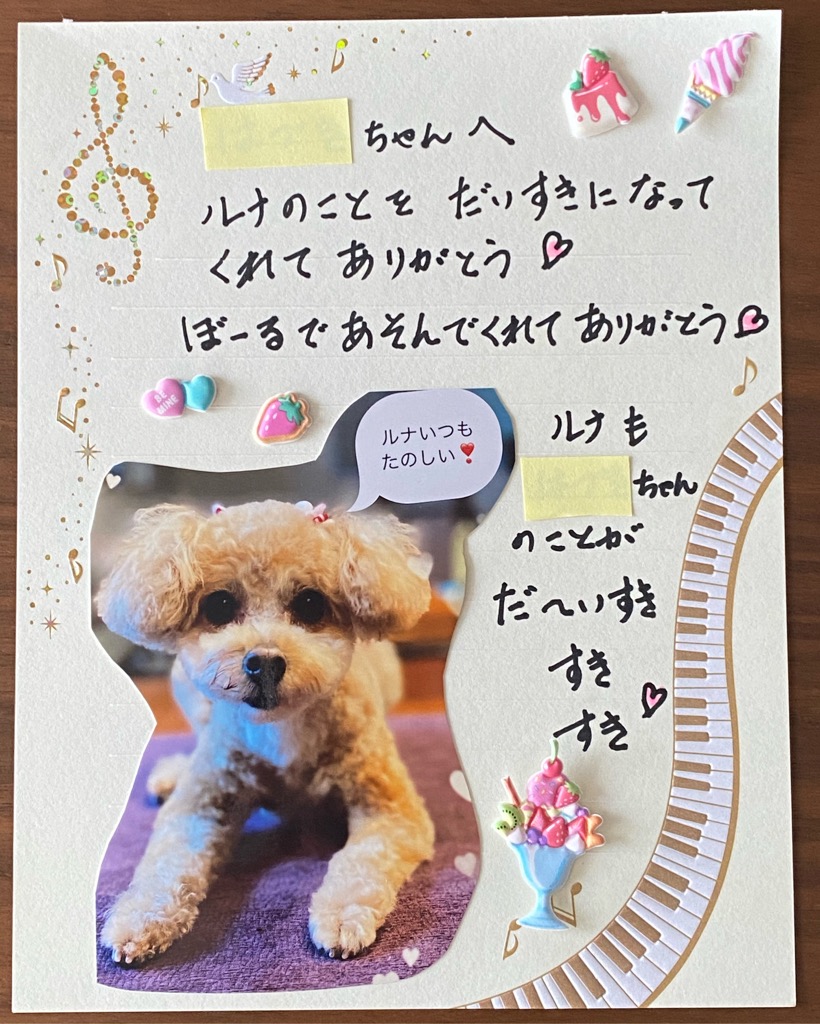 ちゃんへ
ルナのことを だいすきになって
くれて ありがとう
ぼーるであそんでくれて ありがとう
BE
MINE
ルナいつも
たのしい❣
ルナも
ちゃん
のことが
だ〜いすき
すき
すき